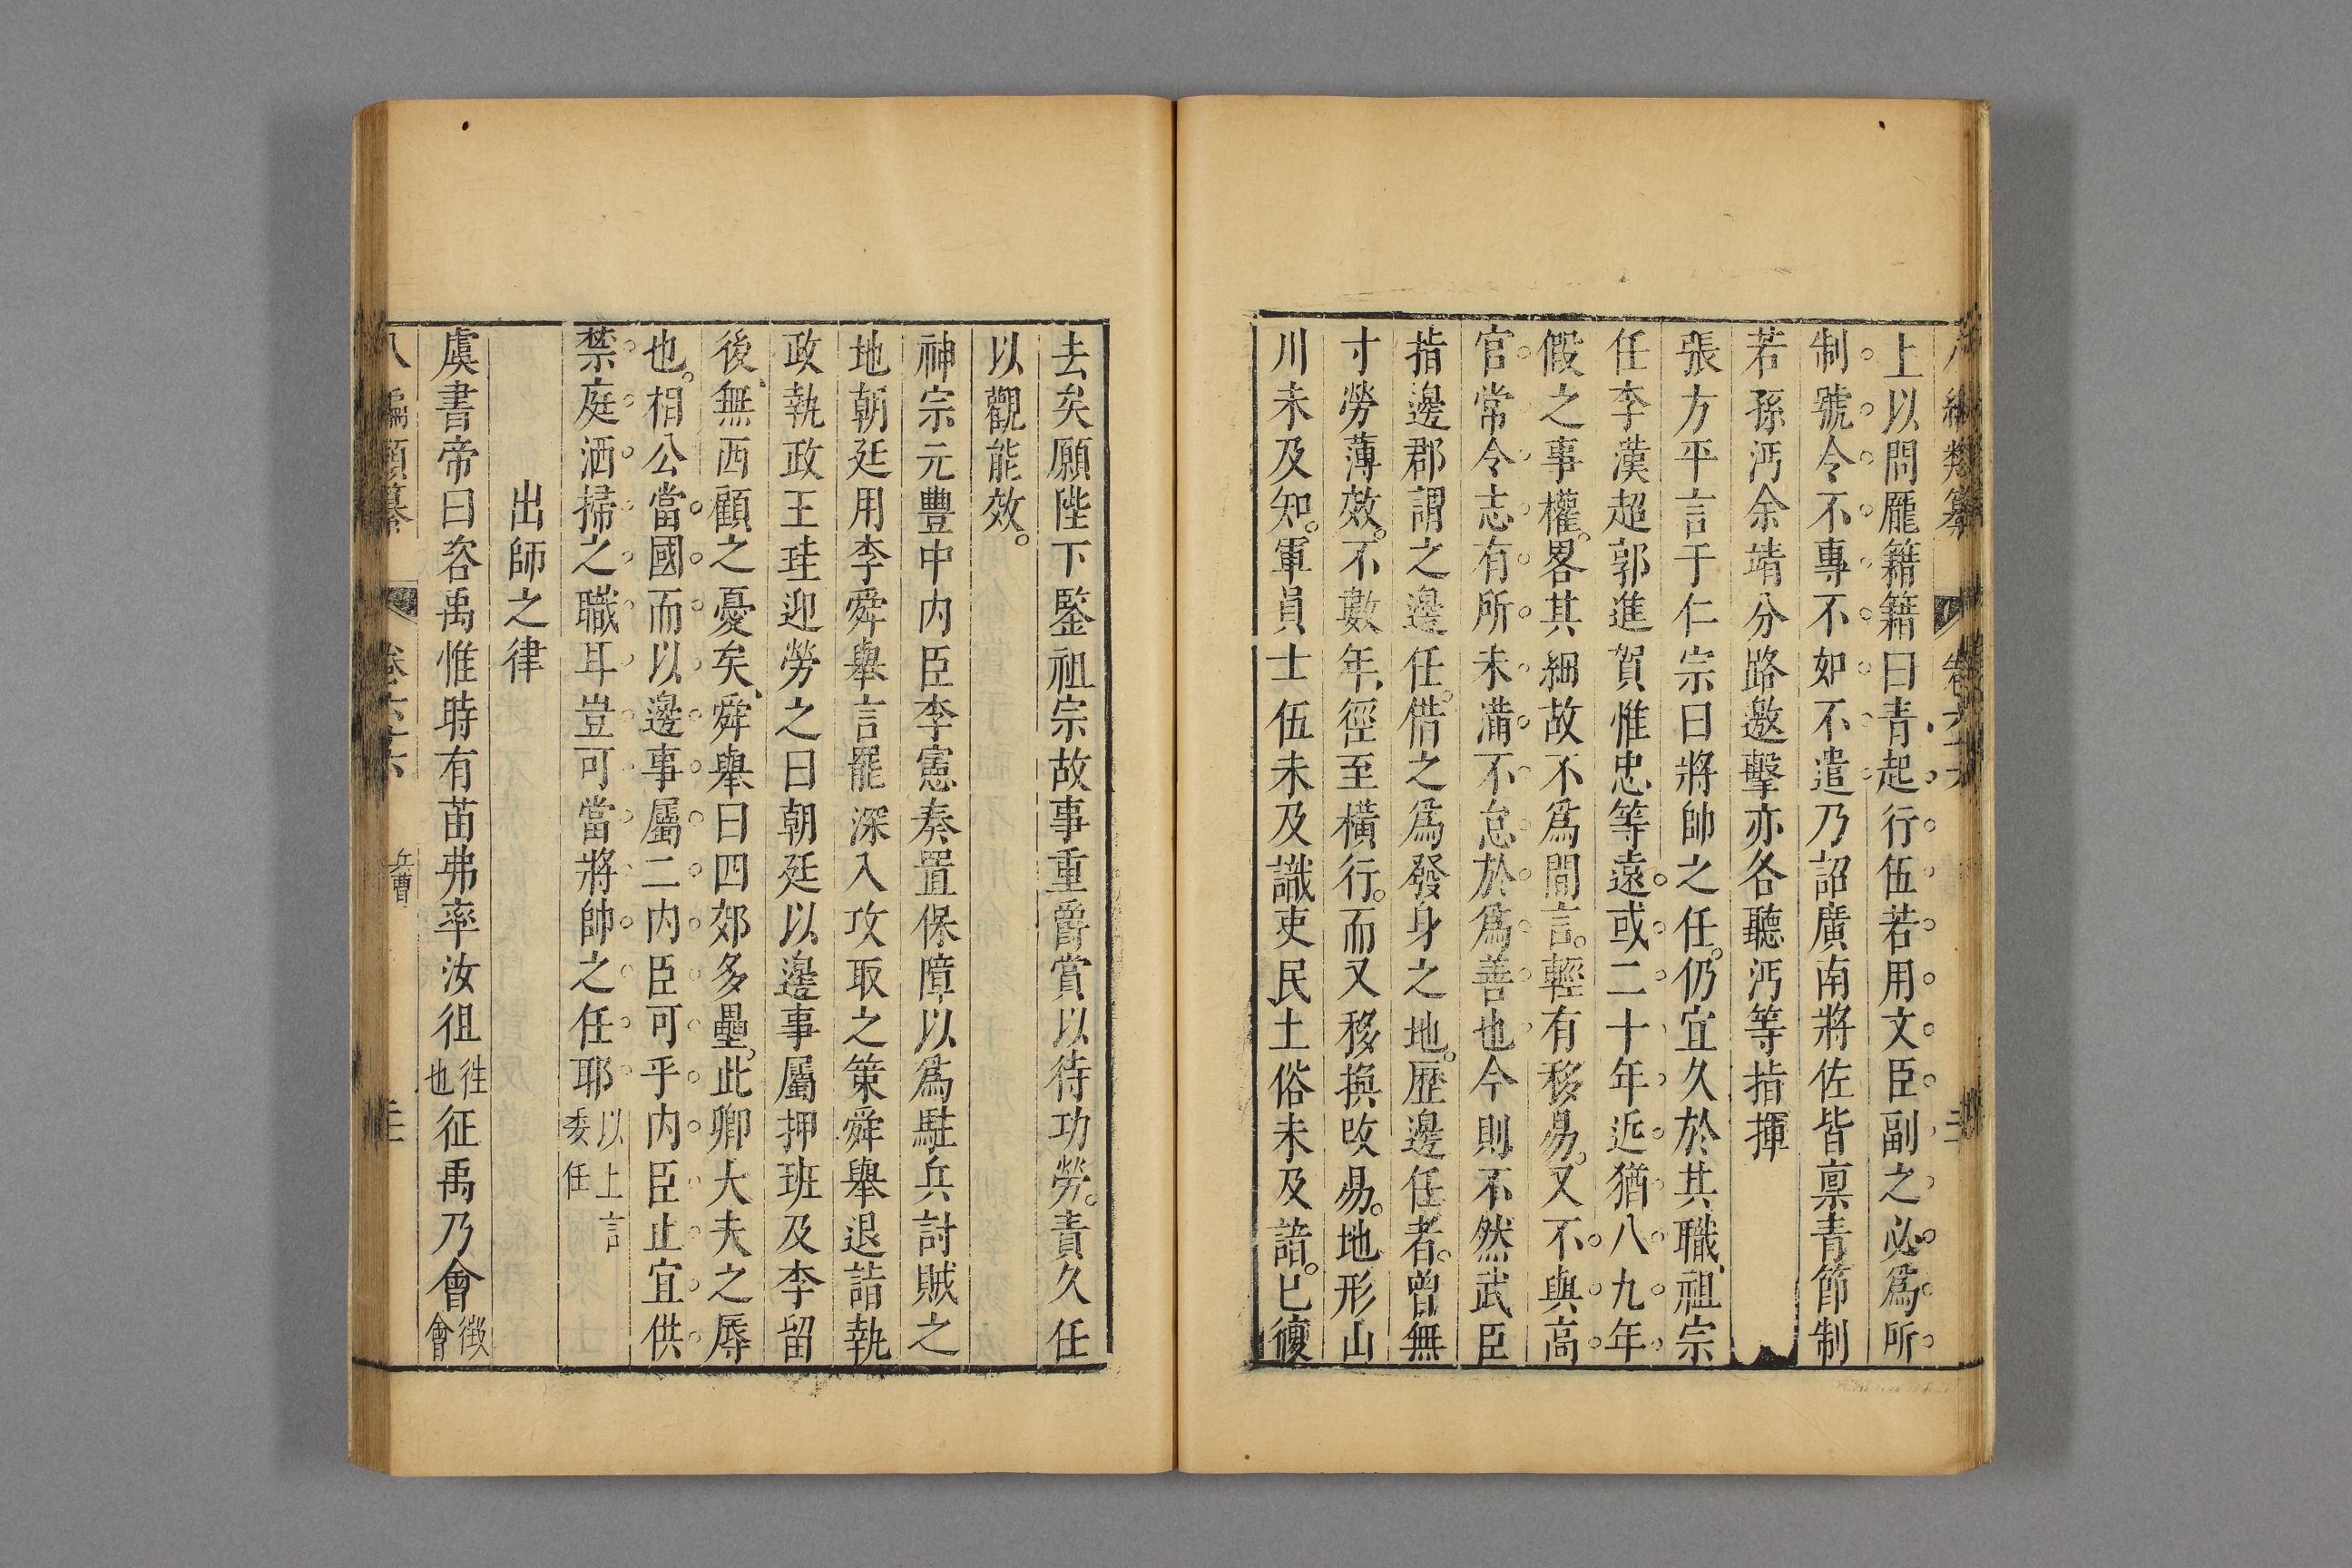 上以問龐籍籍曰青起行伍若用文臣副之必爲所
制號令不專不如不遣乃詔廣南將佐皆禀青節制
若孫沔余靖分路邀擊亦各聽沔等指揮
張方平言于仁宗曰將帥之任仍宜久於其職祖宗
任李漢超郭進賀惟忠等遠或二十年近猶八九年
假之事權畧其細故不爲閒言輕有移易又不與高
官常令志有所未滿不怠於爲善也今則不然武臣
指邊郡謂之邊任借之爲發身之地歷邊任者曾無
寸勞薄效不數年徑至橫行而又移換改易地形山
川未及知軍員士伍未及識吏民土俗未及諳已復
去矣願陛下鍳祖宗故事重爵賞以待功勞責久任
以觀能效
神宗元豐中内臣李憲奏置保障以爲駐兵討賊之
地朝廷用李舜舉言罷深入攻取之策舜舉退詣執
政執政王珪迎勞之曰朝廷以邊事屬押班及李留
後無西顧之憂矣舜舉曰四郊多壘此卿大夫之辱
也相公當國而以邊事屬二内臣可乎内臣止宜供
禁庭洒掃之職耳豈可當將帥之任耶以上言委任
出師之律
虞書帝曰咨禹惟時有苗弗率汝徂往也征禹乃會徴會
八編類纂 卷六六 兵曹